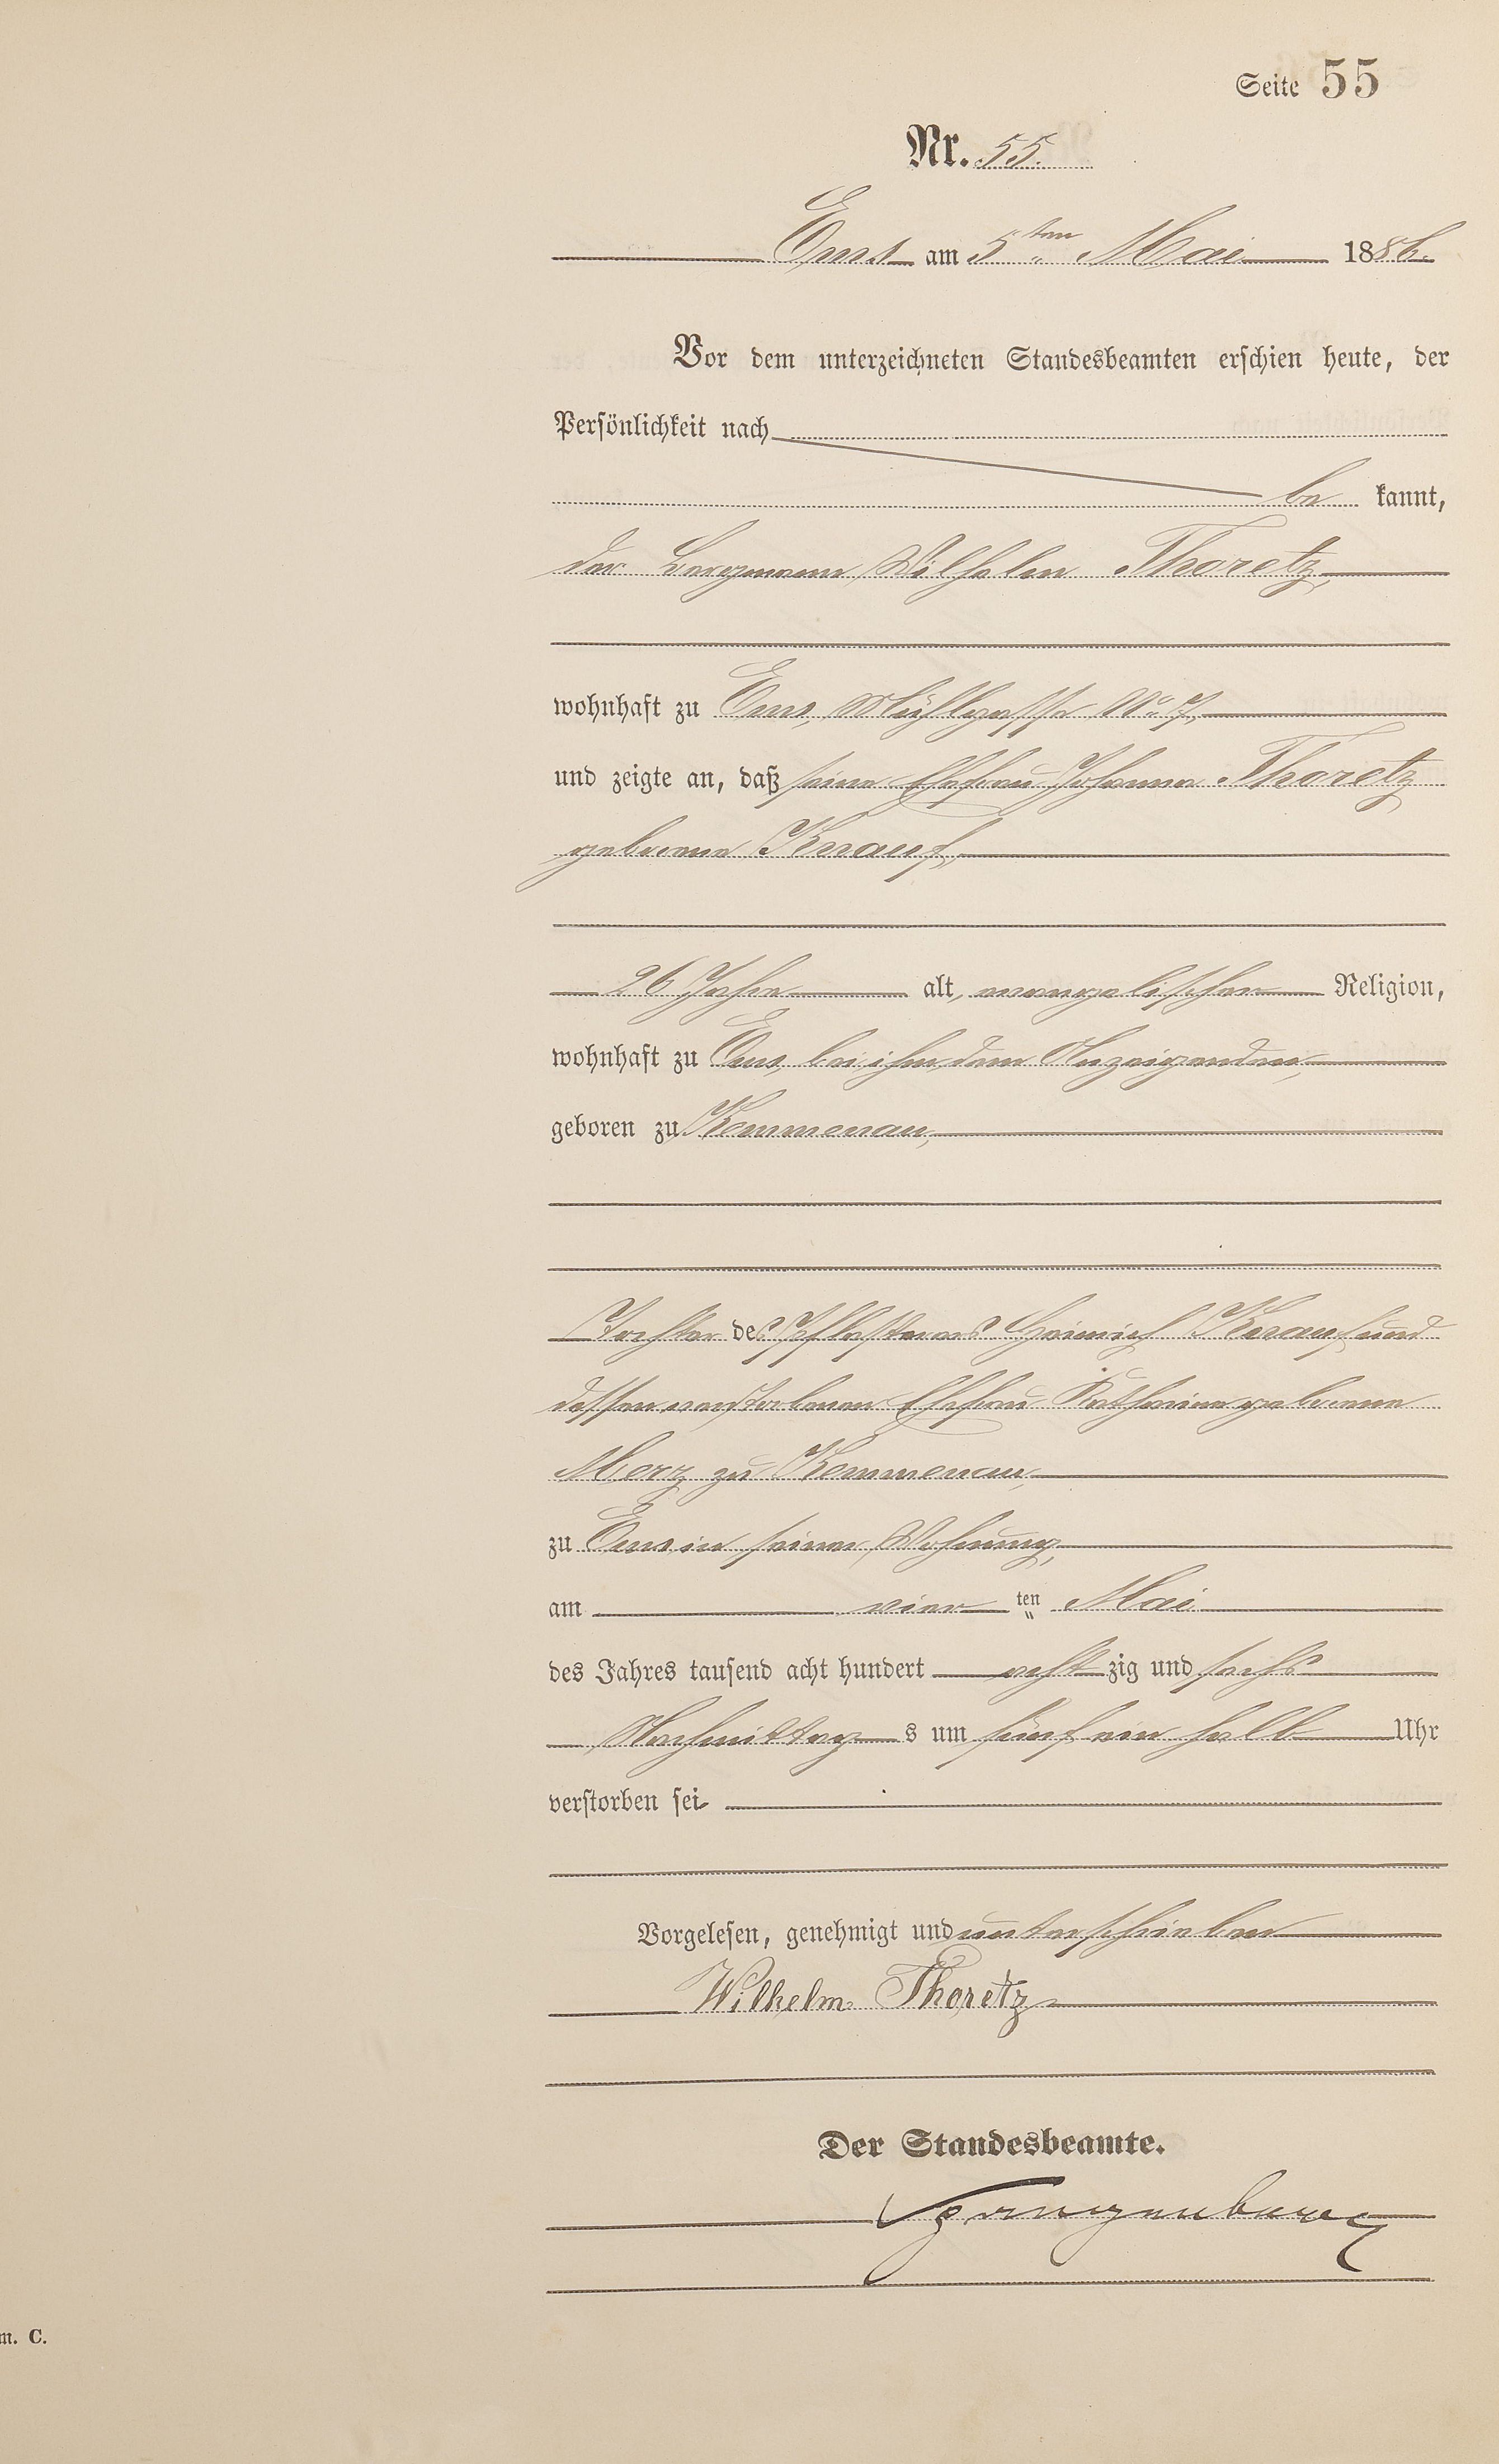 Seite 55
Nr. 55.
Ems am 5ten Mai 1886.
Vor dem unterzeichneten Standesbeamten erschien heute, der
Persönlichkeit nach
be kannt,
der Bergmann Wilhelm Thoretz,
wohnhaft zu Ems, Mühlgasse No 7,
und zeigte an, daß seine Ehefrau Johanna Thoretz
geborene Knauf,
26 Jahre alt, evangelischer Religion,
wohnhaft zu Ems, bei ihm, dem Anzeigenden,
geboren zu Kemmenau,
Tochter des Pflasterers Heinrich Knauf und
dessen verstorbenen Ehefrau Katharina geborene
Merz zu Kemmenau,
zu Ems in seiner Wohnung,
am vier ten Mai
des Jahres tausend acht hundert acht zig und sechs
Nachmittag s um fünf ein halb Uhr
verstorben sei
Vorgelesen, genehmigt und unterschrieben
Wilhelm Thoretz
Der Standesbeamte.
Spangenberg
m. C.